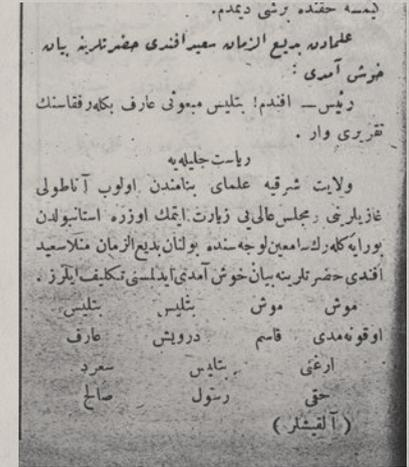 كیمسه حقنده برشی دیمدم.
علمادن بدیع الزمان سعید افندی حضرتلرینه بیان
خوش آمدی :
رئیس ــ افندم! بتلیس مبعوثی عارف بكله رفقاسنك
تقریری وار .
ریاست جلیله یه
ولایت شرقیه علمای بنامندن اولوب آناطولی
غازیلرینی و مجلس عالی یی زیارت ایتمك اوزره استانبولدن
بورایه كله رك سامعین لوجه سنده بولنان بدیع الزمان منلا سعید
افندی حضرتلرینه بیان خوش آمدی ایدلمسنی تكلیف ایلرز .
موش موش بتلیس بتلیس
اوقونه مدی قاسم درویش عارف
ارغنی بتلیس سعرد
حقی رسول صالح
( آلقیشلر )